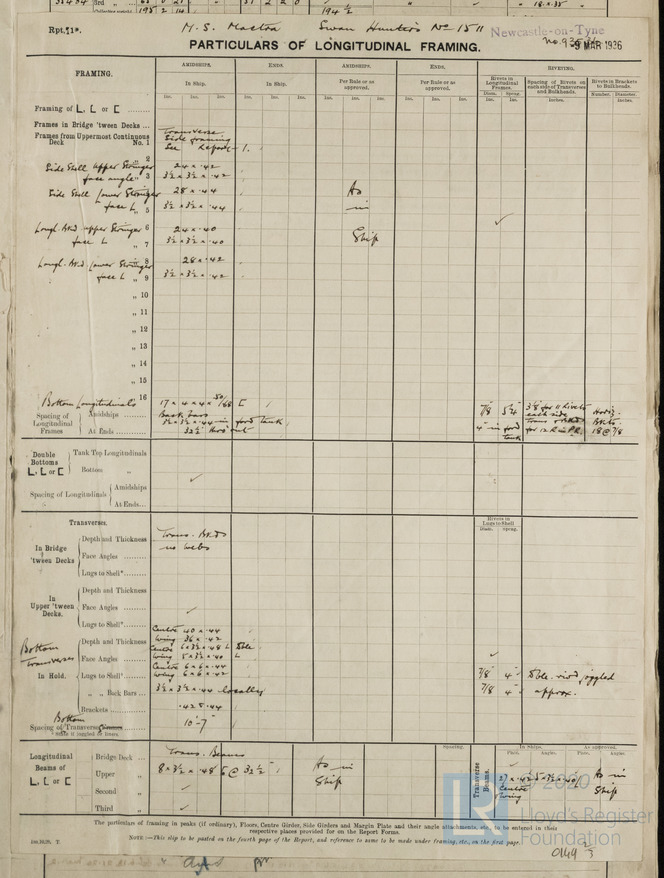 Rpt. 1*.
M.S. Mactra Swan Hunter's No 1511
Newcastle-on-Tyne
PARTICULARS OF LONGITUDINAL FRAMING.
9 MAR 1936
FRAMING.
AMIDSHIPS. ENDS. AMIDSHIPS. ENDS. RIVETING.
In Ship. In Ship. Per Rule or as approved. Per Rule or as approved.
Rivets in Longitudinal Frames. Spacing of Rivets on each side of Transverses and Bulkheads. Rivets in Brackets to Bulkheads.
Ins. Ins. Ins. Ins. Ins. Ins. Ins. Ins. Ins. Ins. Ins. Ins. Diam. Spcng. Inches. Number. Diameter.
Framing of L, L or [
Frames in Bridge 'tween Decks ...
Transverse
Frames from Uppermost Continuous Deck No. 1
Side framing
See Report 1.
„ 2
Side Shell upper Stringer 24 × .42
face angle „ 3 3½ × 3½ × .42
Side Shell Lower Stringer 28 × .44 As
face L „ 5 3½ × 3½ × .44 in
Longl. Bkd upper Stringer 6 24 × .40 ✓
face L „ 7 3½ × 3½ × .40 Ship
Longl. Bkd Lower Stringer 8 28 × .42
face L „ 9 3½ × 3½ × .42
„ 10
„ 11
„ 12
„ 13
„ 14
„ 15
16
Bottom Longitudinals 17 × 4 × 4 × .50/.68 [
Spacing of Longitudinal Frames
Amidships
Back bars
3½ × 3½ × .44 in ford tank
At Ends
32½
7/8 5¼ each side Horiz.
4" in ford tank Bkts. 18 @ 7/8
Double Bottoms L, L or [
Tank Top Longitudinals
Bottom „ ✓
Spacing of Longitudinals
Amidships
At Ends
Transverses.
Rivets in Lugs to Shell
Diam. Spcng.
In Bridge 'tween Decks
Depth and Thickness Trans. Bkds
Face Angles no webs
Lugs to Shell*
In Upper 'tween Decks.
Depth and Thickness
Face Angles ✓
Lugs to Shell*
Bottom Transverses
In Hold.
Depth and Thickness Centre 40 × .44
Wing 36 × .42 ✓
Face Angles Centre 6 × 3½ × .48 L Dble
Wing 5 × 3½ × .40 L
Lugs to Shell* Centre 6 × 6 × .44
Wing 6 × 6 × .42 7/8 4" Dble. rivd joggled
„ „ Back Bars 3½ × 3½ × .44 locally 7/8 4" approx.
Brackets .42 & .44
Bottom
Spacing of Transverse 10'-7"
* State if joggled or liners.
Longitudinal Beams of L, L or [
Bridge Deck Trans. Beams
Upper „ 8 × 3½ × .48 @ 32½ As in Ship
Second „ ✓
Third „ ✓
Spacing. Transverse Beams. In Ships. As approved.
Plate. Angles. Plate. Angles.
Centre As in
Wing Ship
The particulars of framing in peaks (if ordinary), Floors, Centre Girder, Side Girders and Margin Plate and their angle attachments, etc., to be entered in their respective places provided for on the Report Forms.
NOTE:—This slip to be posted on the fourth page of the Report, and reference to same to be made under framing, etc., on the first page.
© 2020
Lloyd's Register
Foundation
0149 2/3